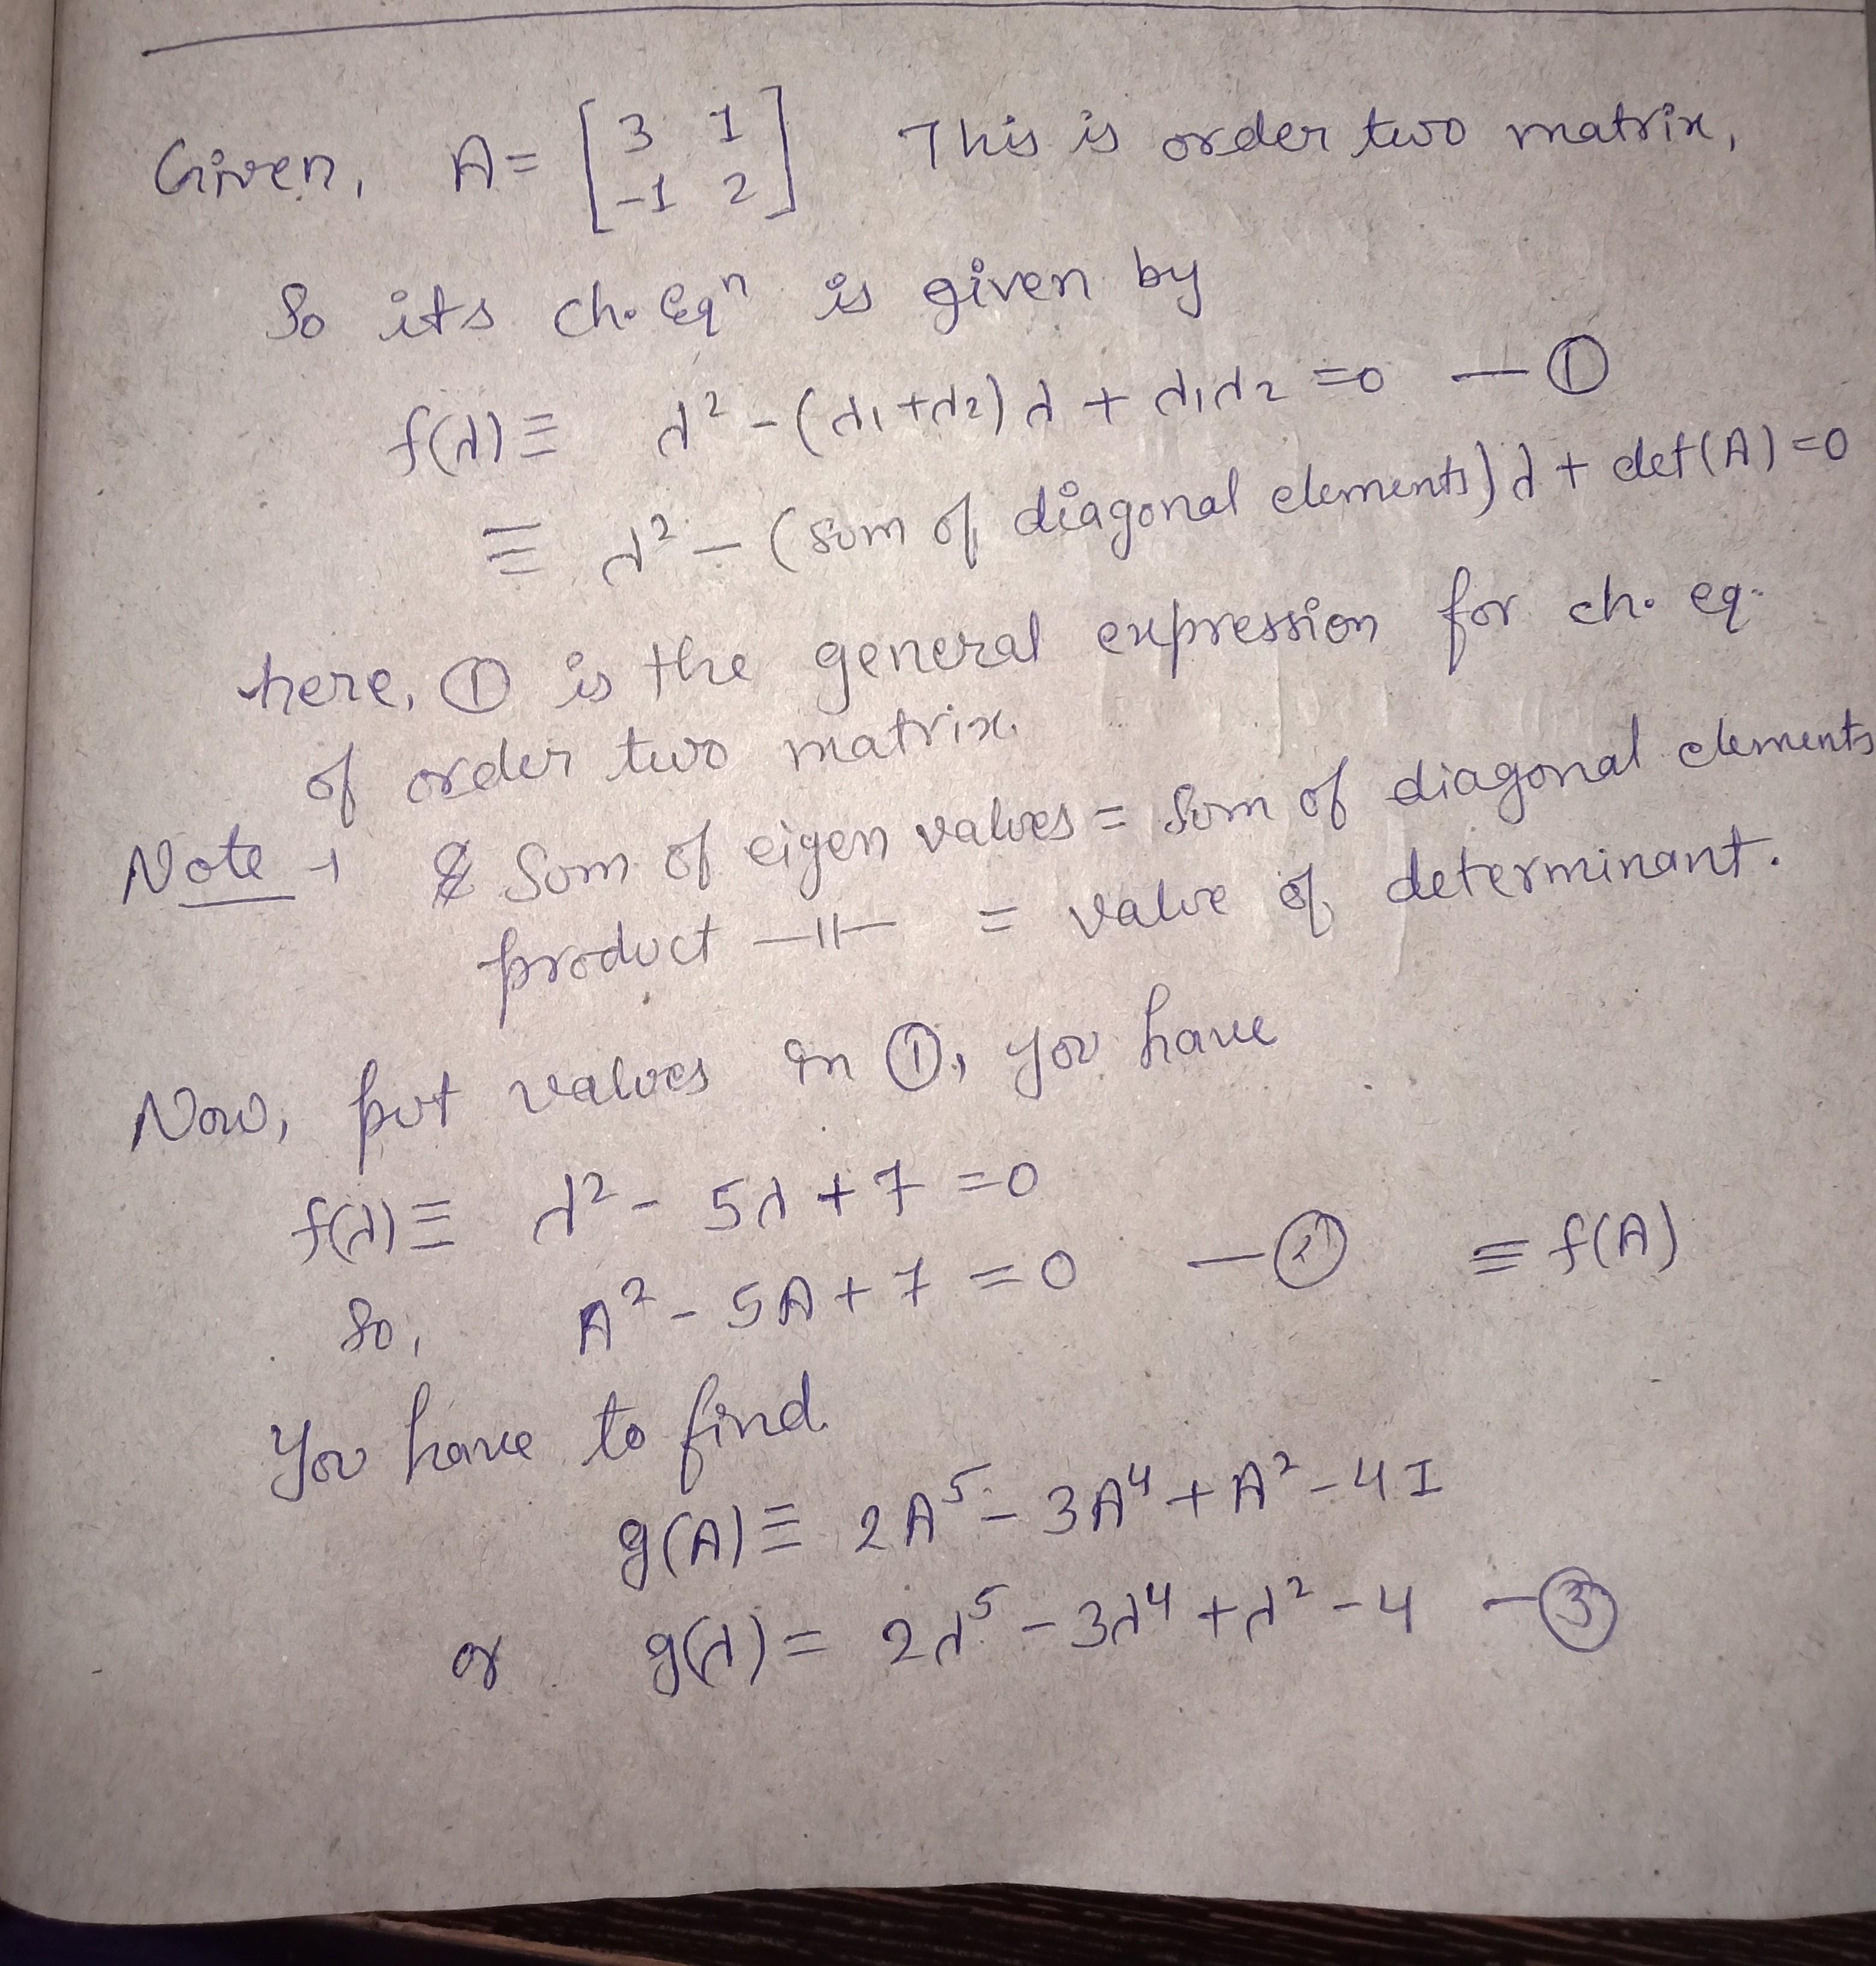 Given, A = [3 1 -1 2] This is order two matrix,
So its ch. Eqⁿ is given by
f(λ) ≡ λ² - (λ₁+λ₂)λ + λ₁λ₂ = 0 — ①
≡ λ² - (sum of diagonal elements)λ + det(A) = 0
here, ① is the general expression for ch. eq.
of order two matrix.
Note → Sum of eigen values = Sum of diagonal elements
product —||— = value of determinant.
Now, put values in ①, you have
f(λ) ≡ λ² - 5λ + 7 = 0
So, A² - 5A + 7 = 0 — ② ≡ f(A)
You have to find
g(A) ≡ 2A⁵ - 3A⁴ + A² - 4I
or g(λ) = 2λ⁵ - 3λ⁴ + λ² - 4 — ③